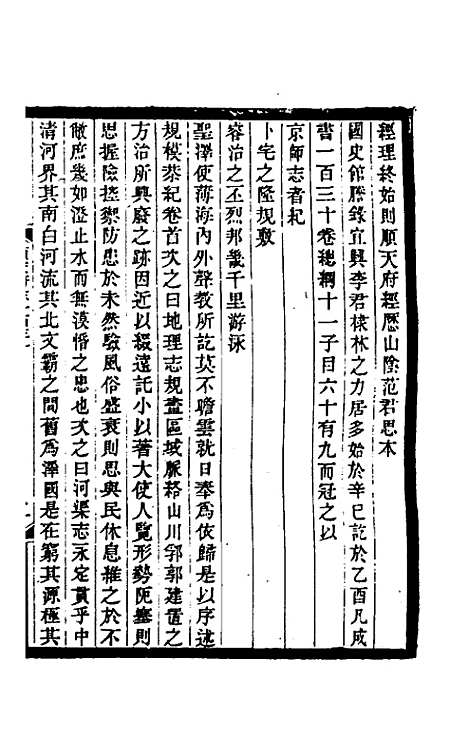 經理終始則順天府經歷山陰范君思本
國史館謄錄宜興李君棣林之力居多始於辛巳訖於乙酉凡成
書一百三十卷總綱十一子目六十有九而冠之以
京師志者紀
卜宅之隆規敷
睿治之丕烈邦畿千里游泳
聖澤使薄海內外聲教所訖莫不瞻雲就日奉為依歸是以序述
規模恭紀卷首次之曰地理志規畫區域脈絡山川郛郭建置之
方治所興廢之跡因近以綴遠託小以著大使人覽形勢阨塞則
思握險控禦防患於未然驗風俗盛衰則思與民休息維之於不
敝庶幾如澄止水而無漠惛之患也次之曰河渠志永定貫乎中
清河界其南白河流其北文霸之間舊為澤國是在窮其源極其